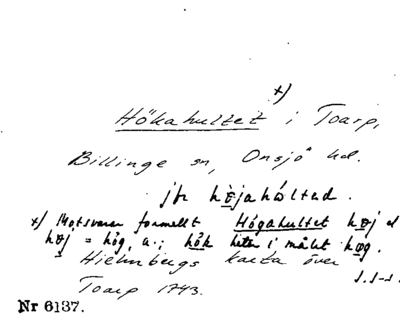 x)
Hökahultet i Toarp,
Billinge sn, Onsjö hd.
jfr höjahåltad.
x) Motsvarar formellt Högahultet höj el
höj = hög, a.; hök heter i målet høg.
Hielmbergs karta över
Toarp 1743.
Nr 6137.